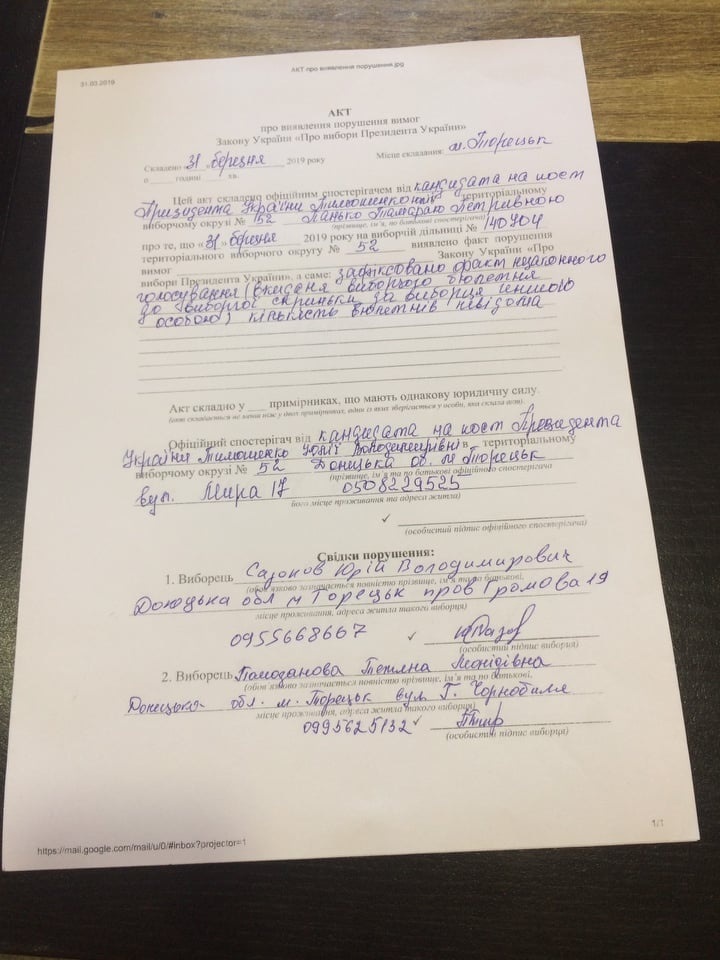 31.03.2019
АКТ про виявлення порушення.jpg
АКТ
про виявлення порушення вимог
Закону України «Про вибори Президента України»
Складено «31» березня 2019 року Місце складання: м. Торецьк
о ____ годині ____ хв.
Цей акт складено офіційним спостерігачем від кандидата на пост
Президента України Тимошенко територіальному
виборчому окрузі № 152 Панько Тамарою Петрівною
(прізвище, ім'я, по батькові спостерігача)
про те, що «31» березня 2019 року на виборчій дільниці № 140704
територіального виборчого округу № 52 виявлено факт порушення
вимог Закону України «Про
вибори Президента України», а саме: зафіксовано факт незаконного
голосування (вкидання виборчого бюлетня
до виборчої скриньки за виборця іншою
особою) кількість бюлетнів невідома
Акт складно у ___ примірниках, що мають однакову юридичну силу.
(акт складається не менш ніж у двох примірниках, один із яких зберігається у особи, яка склала акт).
Офіційний спостерігач від кандидата на пост Президента
України Тимошенко Юлії Володимирівни територіальному
виборчому окрузі № 52 Донецька об. м Торецьк
(прізвище, ім'я та по батькові офіційного спостерігача
вул. Мира 17 0508229525
його місце проживання та адреса житла)
✓
(особистий підпис офіційного спостерігача)
Свідки порушення:
1. Виборець Сазонов Юрій Володимирович
(обов'язково зазначається повністю прізвище, ім'я та по батькові,
Донецька обл м Торецьк пров Громова 19
місце проживання, адреса житла такого виборця)
0955668667 ✓
(особистий підпис виборця)
2. Виборець Тетяна Леонідівна
(обов'язково зазначається повністю прізвище, ім'я та по батькові,
Донецька обл. м. Торецьк вул Г. Чорнобиля
місце проживання, адреса житла такого виборця)
0995625132 ✓
(особистий підпис виборця)
1/1
https://mail.google.com/mail/u/0/#inbox?projector=1